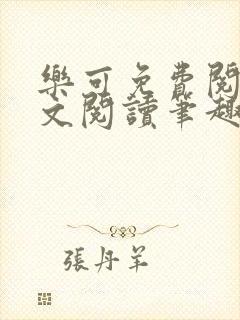 樂可免費閱
文閱讀筆趣
張丹羊